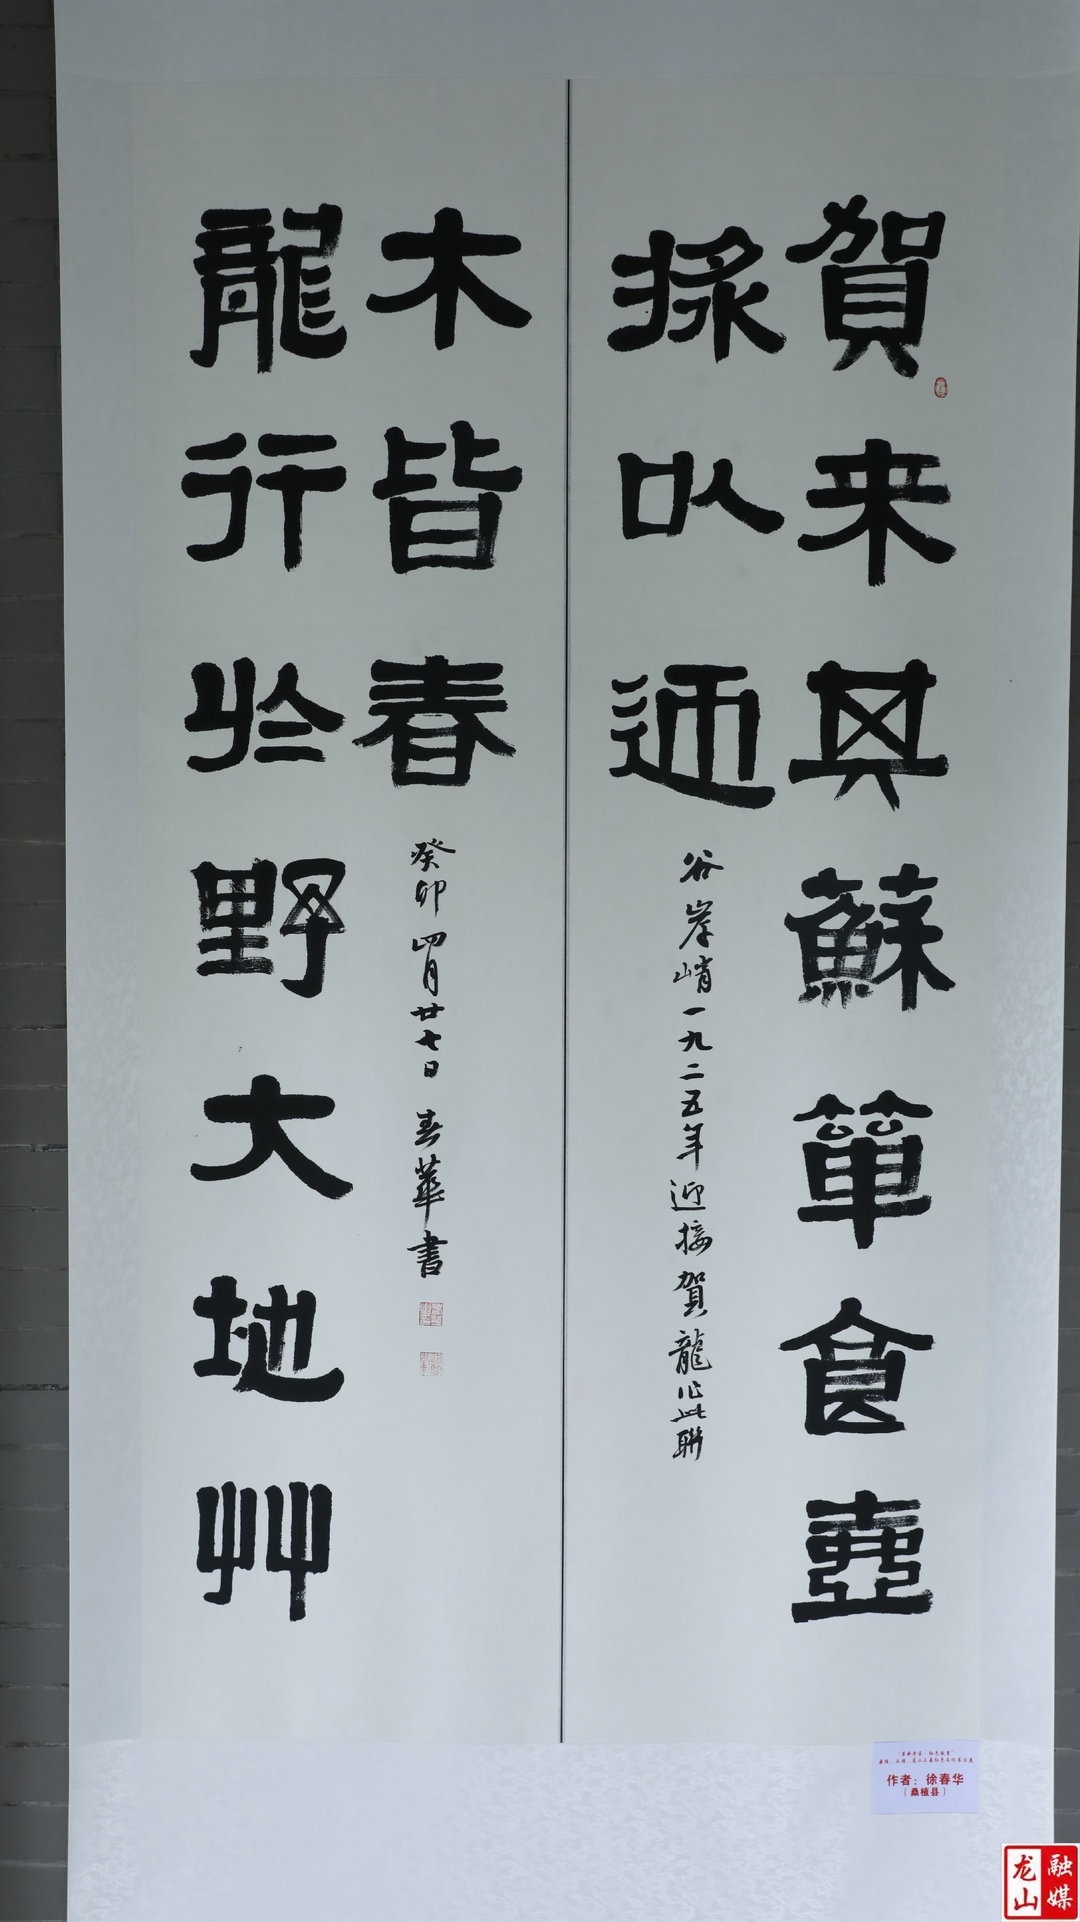 賀来其蘇簞食壺
漿以迎
谷岸峭一九二五年迎接賀龍作此聯
龍行於野大地艸
木皆春
癸卯四月廿七日春華書
作者：徐春华
（桑植县）
龙山
融媒